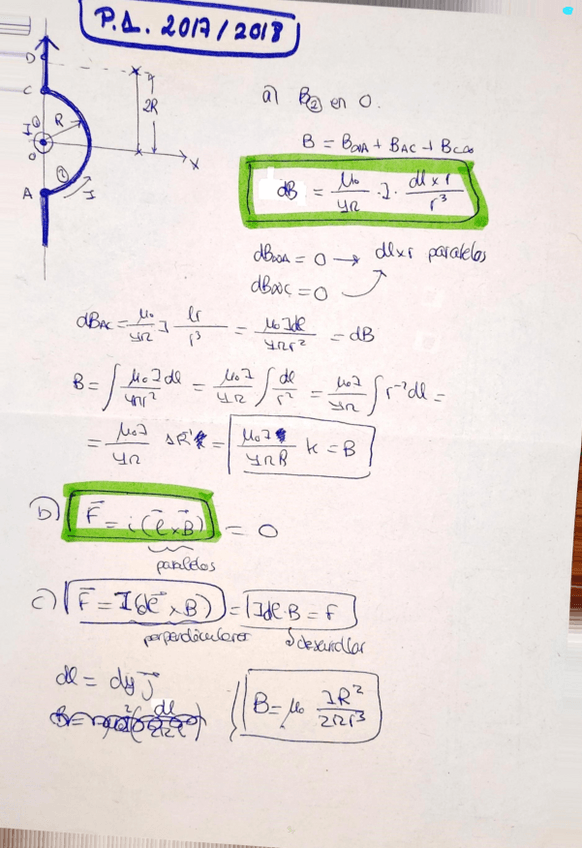 P.1. 2017/2018
D
C
R
2R
I
O
X
A
I
a) B② en 0.
B = B∞A + BAC + BC∞
dB = μ₀/4π · I · dl×r/r³
dB∞A = 0 → dl×r paralelos
dB∞C = 0
dBAC = μ₀/4π I lr/r³ = μ₀Idl/4πr² = dB
B = ∫ μ₀Idl/4πr² = μ₀I/4π ∫ dl/r² = μ₀I/4π ∫ r⁻²dl =
= μ₀I/4π = μ₀I/4πR k = B
b) F = i(l×B) = 0
paralelos
c) F = I(dl×B) = Idl·B = F
perpendiculares
desarrollar
dl = dy j
B = μ₀ IR²/2πr³